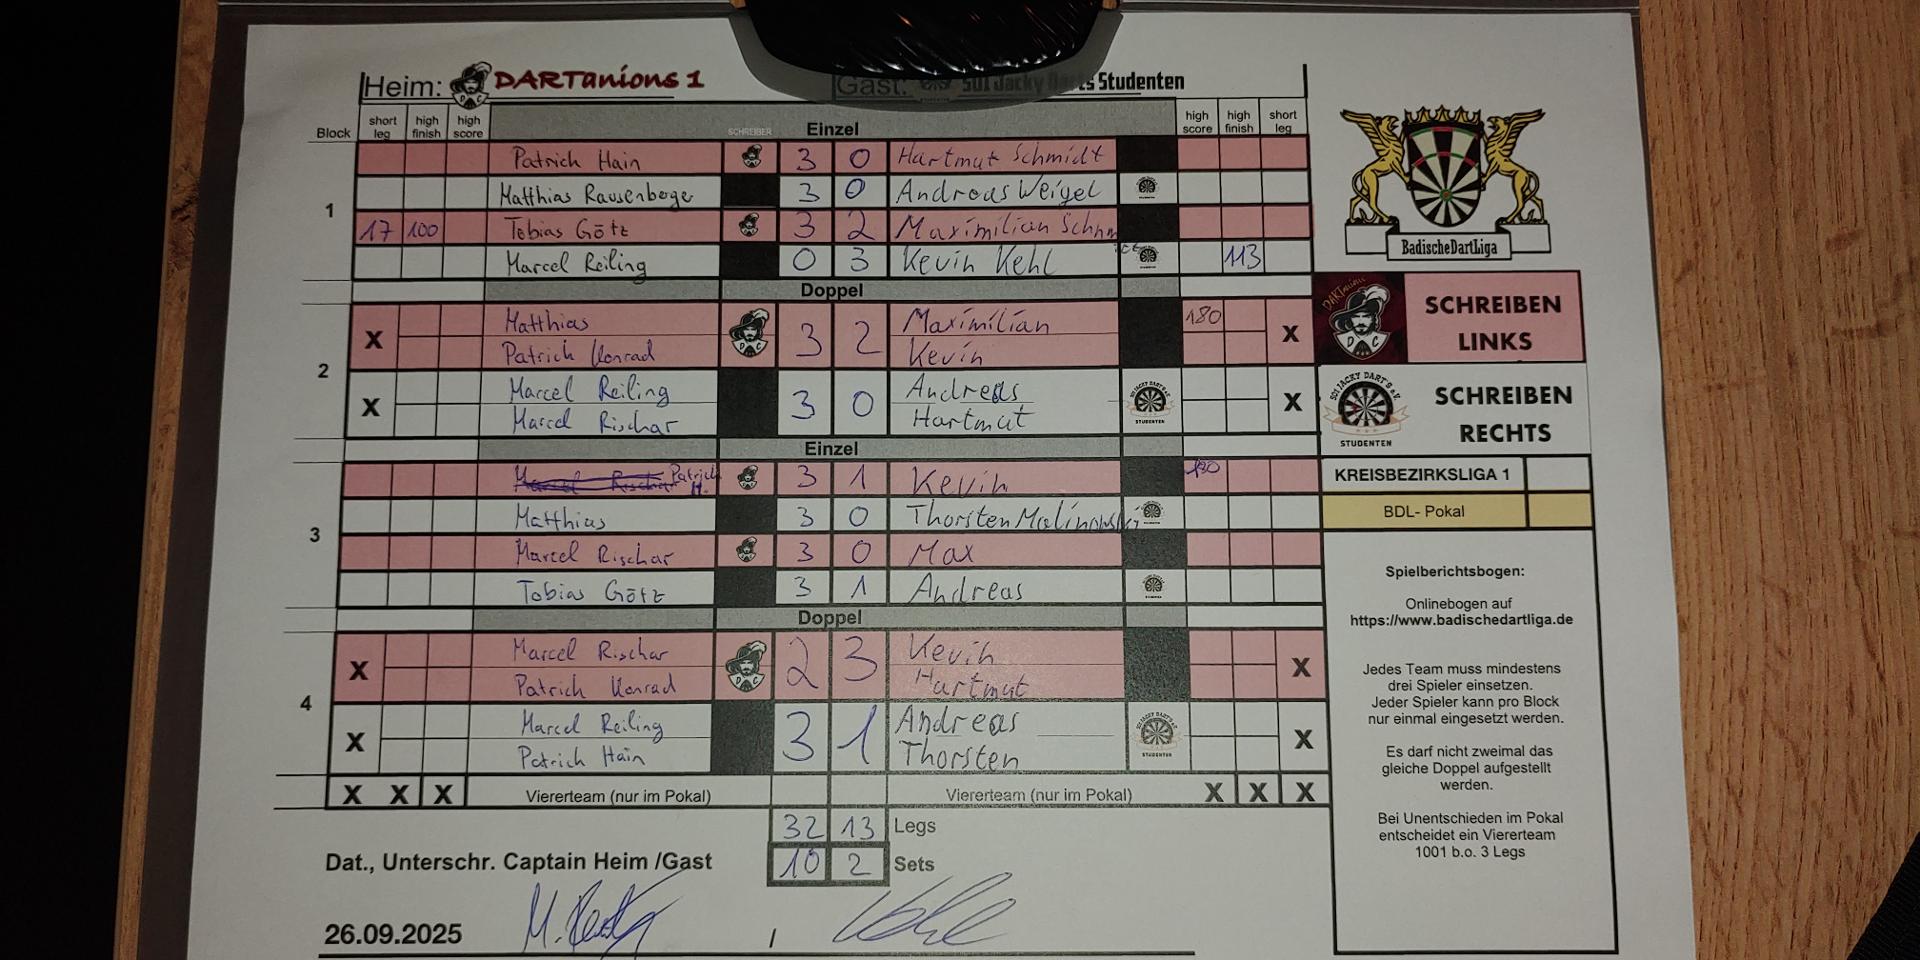 Heim: DARTanions 1 Gast: 501 Jacky Darts Studenten
Block short leg high finish high score SCHREIBER Einzel high score high finish short leg
1
Patrick Hain 3 0 Hartmut Schmidt
Matthias Rausenberger 3 0 Andreas Weigel
17 100 Tobias Götz 3 2 Maximilian
Marcel Reiling 0 3 Kevin Kehl 113
Doppel
2
X Matthias 3 2 Maximilian 180 X
Patrick Konrad Kevin
X Marcel Reiling 3 0 Andreas X
Marcel Rischar Hartmut
Einzel
3
Marcel Rischar Patrick H. 3 1 Kevin 180
Matthias 3 0 Thorsten Malinowski
Marcel Rischar 3 0 Max
Tobias Götz 3 1 Andreas
Doppel
4
X Marcel Rischar 2 3 Kevin X
Patrick Konrad Hartmut
X Marcel Reiling 3 1 Andreas X
Patrick Hain Thorsten
X X X Viererteam (nur im Pokal) Viererteam (nur im Pokal) X X X
32 13 Legs
Dat., Unterschr. Captain Heim /Gast 10 2 Sets
26.09.2025 /
BadischeDartLiga
DARTanions
D C
SCHREIBEN
LINKS
501 JACKY DART'S e.V.
STUDENTEN
SCHREIBEN
RECHTS
KREISBEZIRKSLIGA 1
BDL- Pokal
Spielberichtsbogen:
Onlinebogen auf
https://www.badischedartliga.de
Jedes Team muss mindestens
drei Spieler einsetzen.
Jeder Spieler kann pro Block
nur einmal eingesetzt werden.
Es darf nicht zweimal das
gleiche Doppel aufgestellt
werden.
Bei Unentschieden im Pokal
entscheidet ein Viererteam
1001 b.o. 3 Legs